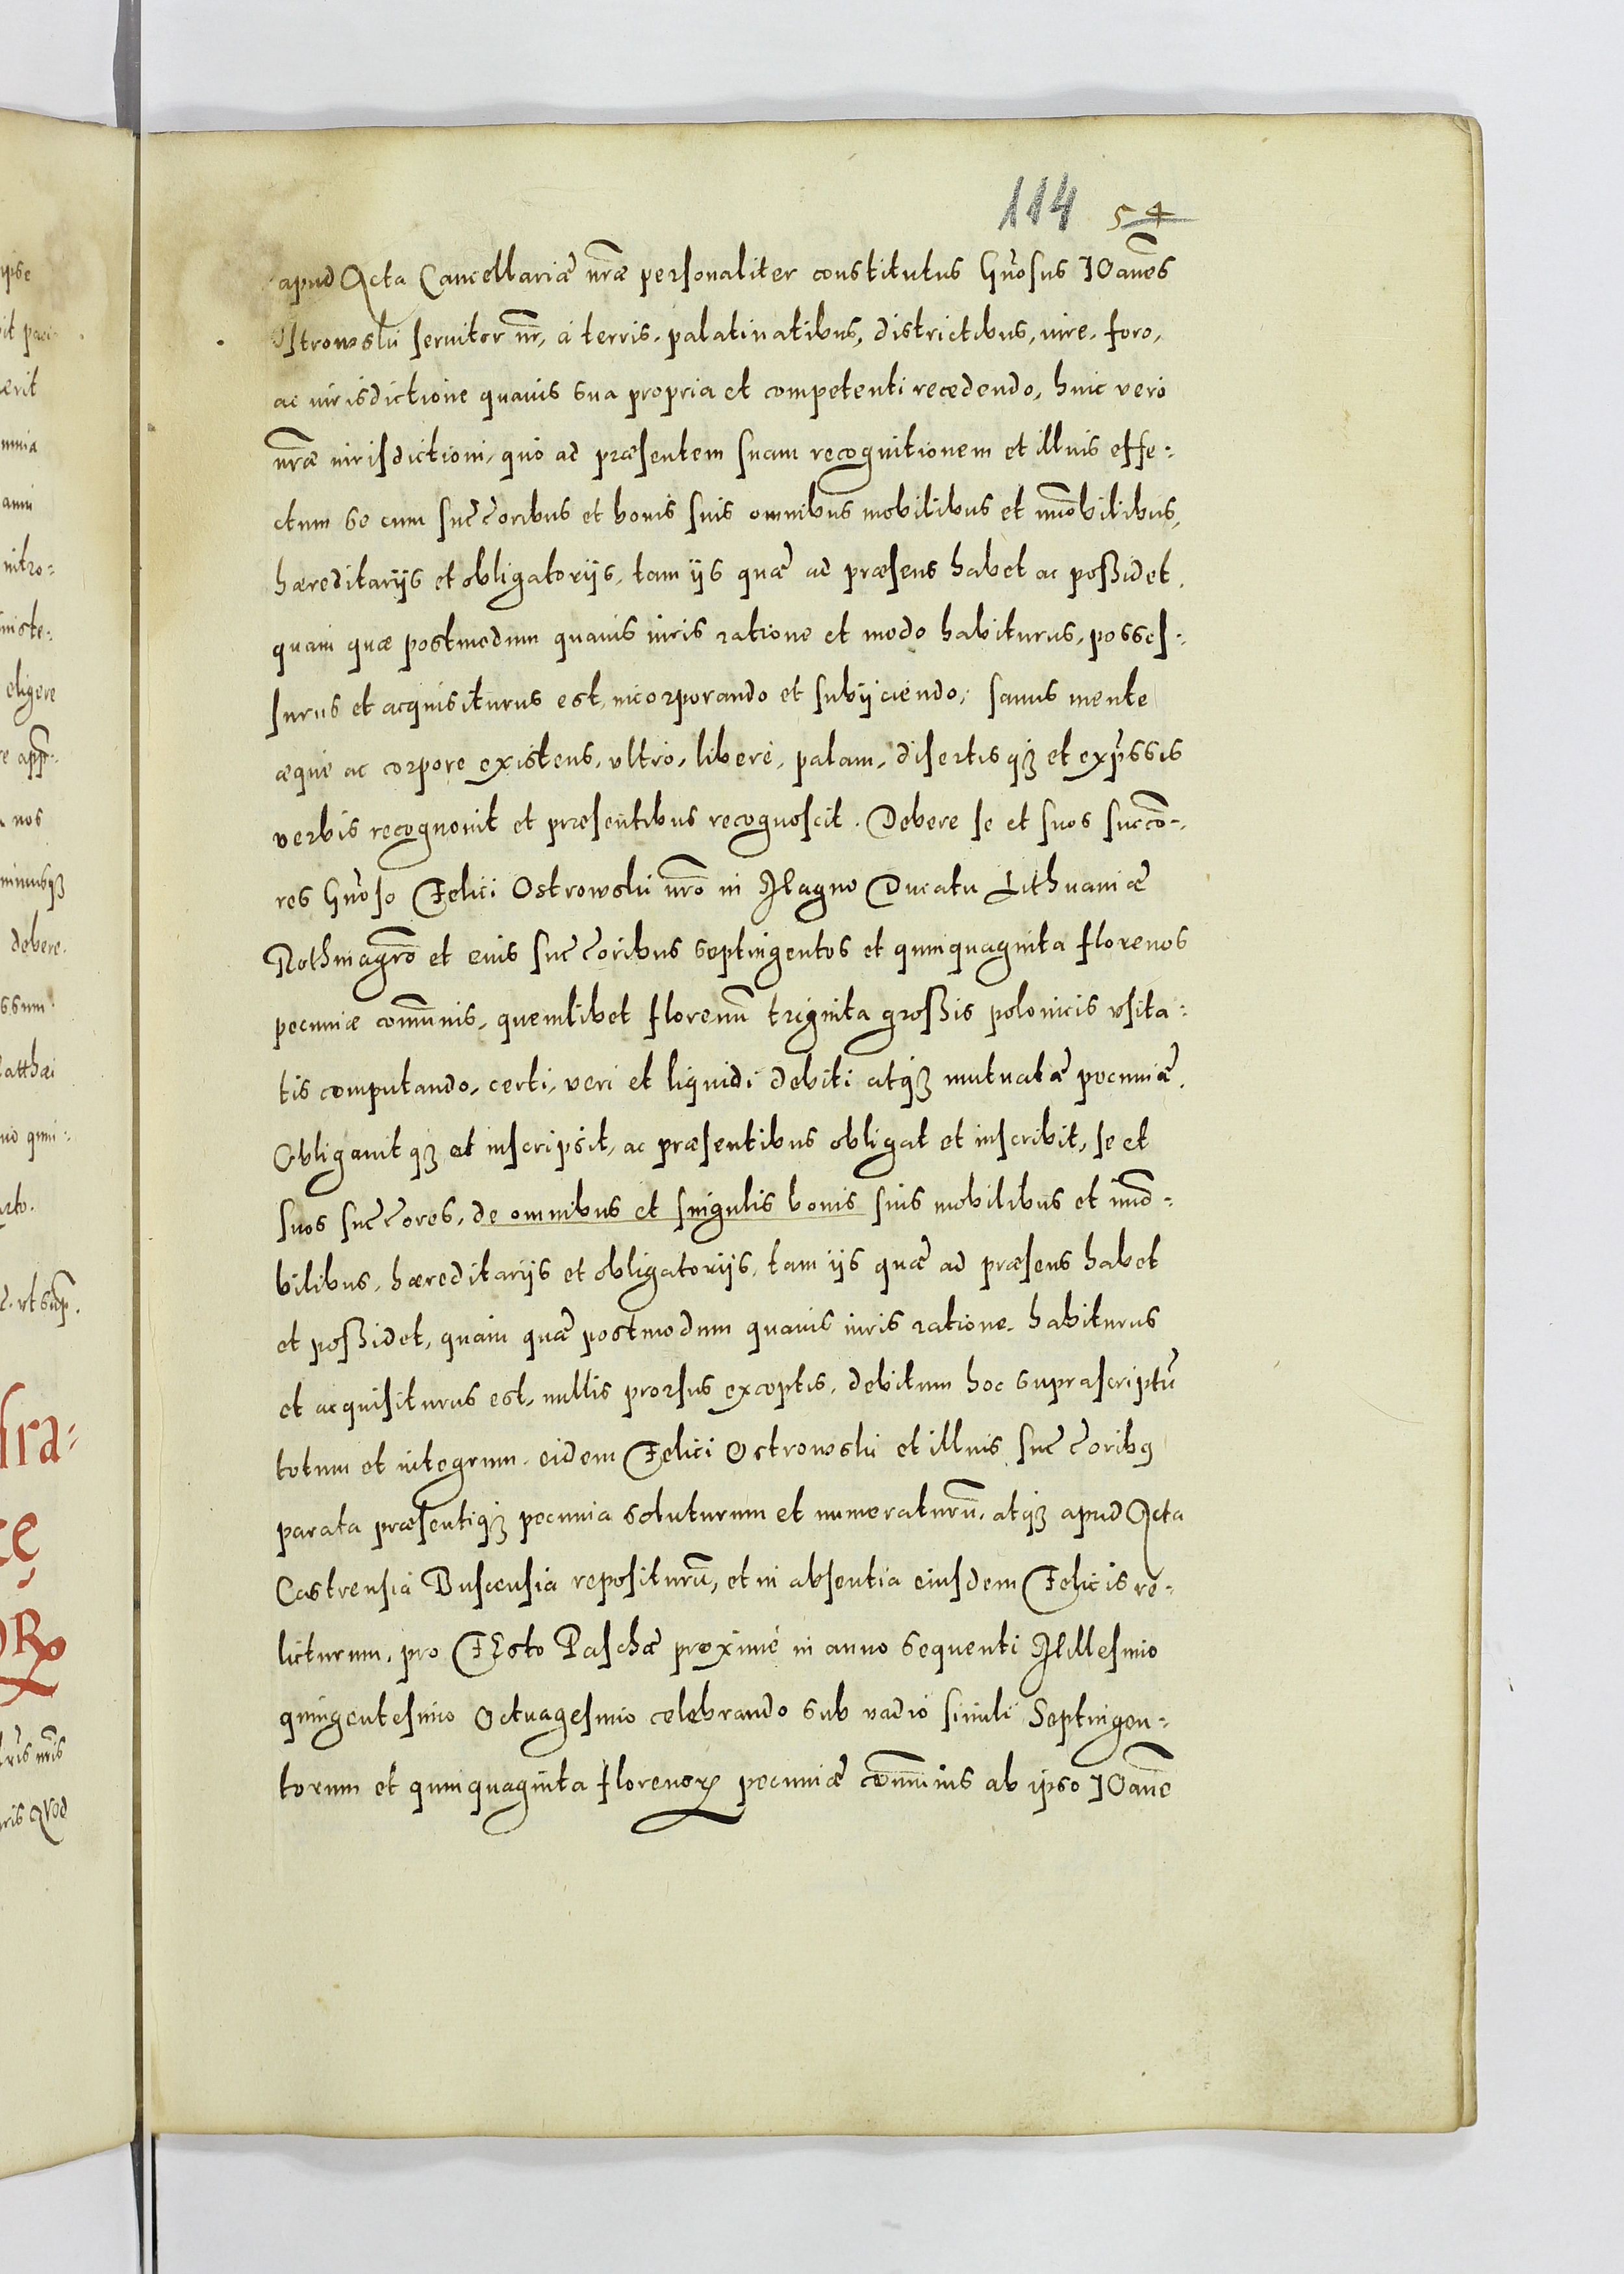 114 54
apud Acta Cancellariæ nr̃æ personaliter constitutus Gñosus IOañes
Ostrowski seruitor nr̃, à terris, palatinatibus, districtibus, iure, foro,
ac iurisdictione quauis sua propria et competenti recedendo, huic verò
nr̃æ iurisdictioni, quò ad præsentem suam recognitionem et illius effe:
ctum se cum succ̃oribus et bonis suis omnibus mobilibus et im̃obilibus,
hæreditarijs et obligatorijs, tam ijs quæ ad præsens habet ac possidet,
quàm quæ postmodum quauis iuris ratione et modo habiturus, posses:
surus et acquisiturus est, incorporando et subijciendo, sanus mente
æquè ac corpore existens, vltrò, liberè, palam, disertisqȝ et exp̃ssis
verbis recognouit et præsentibus recognoscit. Debere se et suos succõ:
res Gñoso Felici Ostrowski nr̃o in Magno Ducatu Lithuaniæ
Rothmagr̃o et eius succ̃oribus septingentos et quinquaginta florenos
pecuniæ com̃unis, quemlibet florenũ triginta grossis polonicis vsita:
tis computando, certi, veri et liquidi debiti atqȝ mutuatæ pecuniæ.
Obligauitqȝ et inscripsit, ac præsentibus obligat et inscribit, se et
suos succ̃ores, de omnibus et singulis bonis suis mobilibus et im̃o:
bilibus, hæreditarijs et obligatorijs, tam ijs quæ ad præsens habet
et possidet, quàm quæ postmodum quauis iuris ratione habiturus
et acquisiturus est, nullis prorsus exceptis, debitum hoc suprascriptũ
totum et integrum eidem Felici Ostrowski et illius succ̃oribꝰ
parata præsentiqȝ pecunia soluturum et numeraturũ, atqȝ apud Acta
Castrensia Buscensia repositurũ, et in absentia eiusdem Felicis re:
licturum, pro FEsto Paschæ proximè in anno sequenti Millesimo
quingentesimo Octuagesimo celebrando sub vadio simili Septingen:
torum et quinquaginta florenoꝝ pecuniæ com̃unis ab ipso IOañe